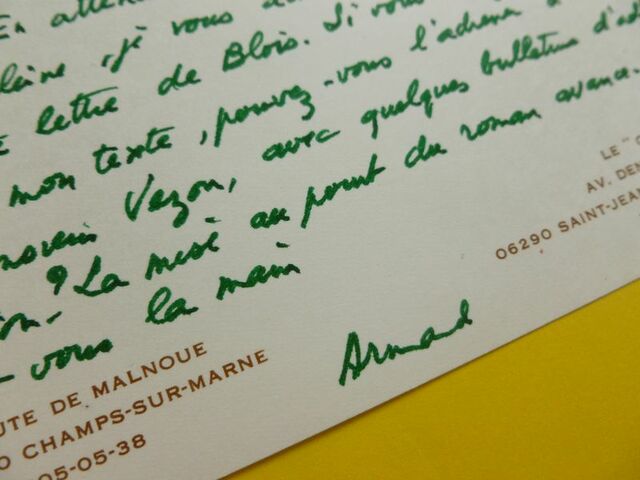 En atten
, je vous a
lettre de Blois. Si vous
mon texte, pouvez-vous l'adresser à
Vezon, avec quelques bulletins d'a
? La mise au point du roman avance.
- vous la main
Armand
UTE DE MALNOUE
0 CHAMPS-SUR-MARNE
05-05-38
LE "
AV. DEN
06290 SAINT-JEAN